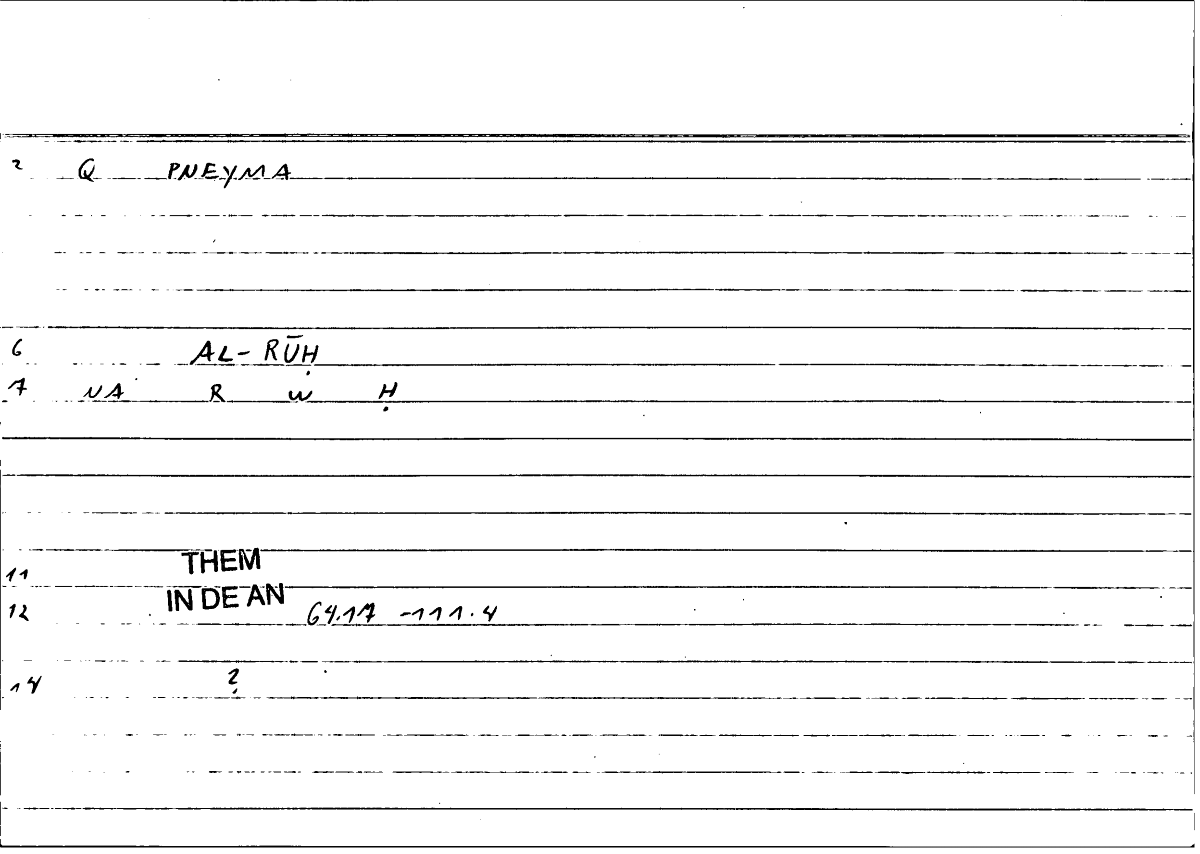 2 Q PNEYMA
6 AL-RŪḤ
7 NA R W Ḥ
11 THEM
12 IN DE AN 64.17 -111.4
14 ?